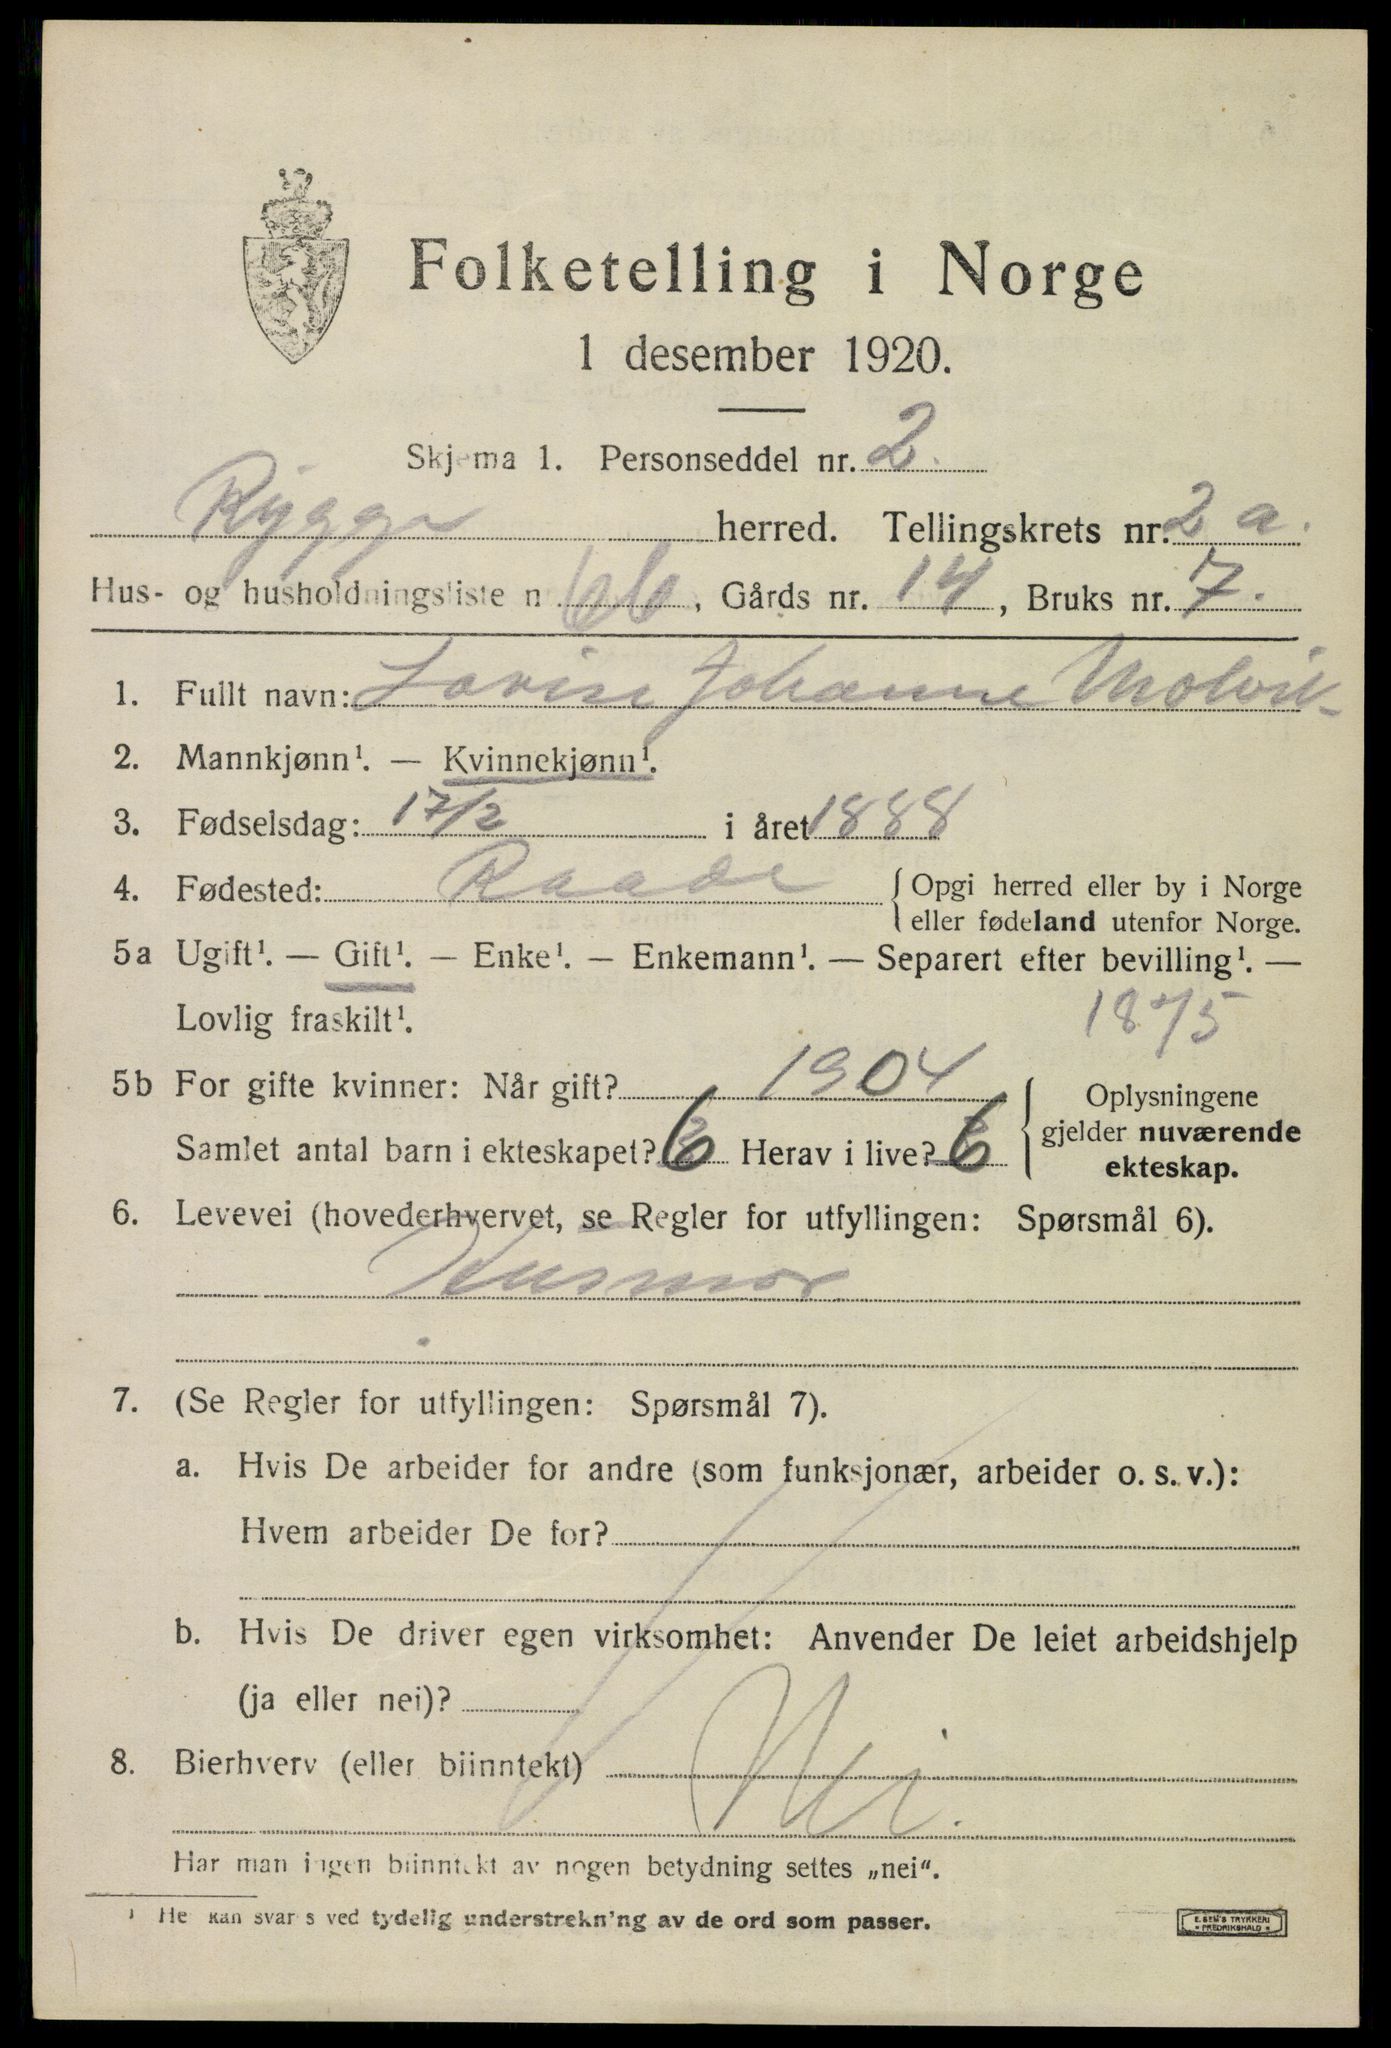 Folketelling i Norge
1 desember 1920.
Skjema 1. Personseddel nr. 2.
Rygge herred. Tellingskrets nr. 2 a.
Hus- og husholdningsliste n 66, Gårds nr. 14, Bruks nr. 7.
1. Fullt navn: Lovise Johanne Molvik
2. Mannkjønn¹. — Kvinnekjønn¹.
3. Fødselsdag: 17/2 i året 1888
4. Fødested: Raade { Opgi herred eller by i Norge
eller fødeland utenfor Norge.
5a Ugift¹. — Gift¹. — Enke¹. — Enkemann¹. — Separert efter bevilling¹. —
Lovlig fraskilt¹. 1875
5b For gifte kvinner: Når gift? 1904
Samlet antal barn i ekteskapet? 6 Herav i live? 6
{ Oplysningene
gjelder nuværende
ekteskap.
6. Levevei (hovederhvervet, se Regler for utfyllingen: Spørsmål 6).
Husmor
7. (Se Regler for utfyllingen: Spørsmål 7).
a. Hvis De arbeider for andre (som funksjonær, arbeider o. s. v.):
Hvem arbeider De for?
b. Hvis De driver egen virksomhet: Anvender De leiet arbeidshjelp
(ja eller nei)?
8. Bierhverv (eller biinntekt) Nei.
Har man ingen biinntekt av nogen betydning settes „nei“.
¹ He kan svar s ved tydelig understrekn'ng av de ord som passer.
E. SEM'S TRYKKERI
* FREDRIKSHALD *